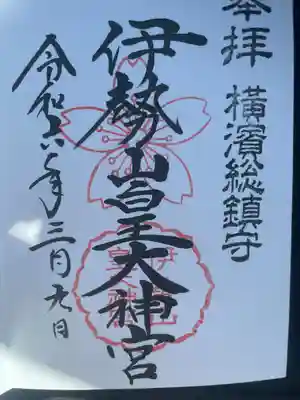 奉拝
横濱総鎮守
伊勢山皇大神宮
令和六年三月九日